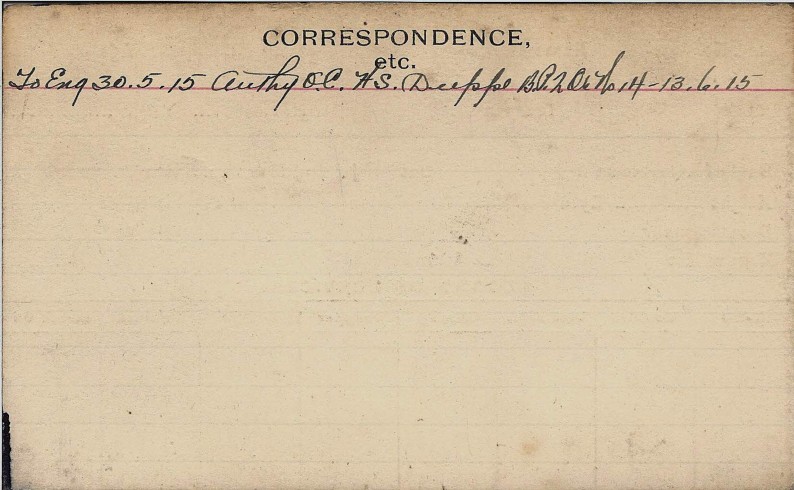 CORRESPONDENCE,
etc.
To Eng 30.5.15 Authy O.C. H.S. Dieppe 14-13.6.15